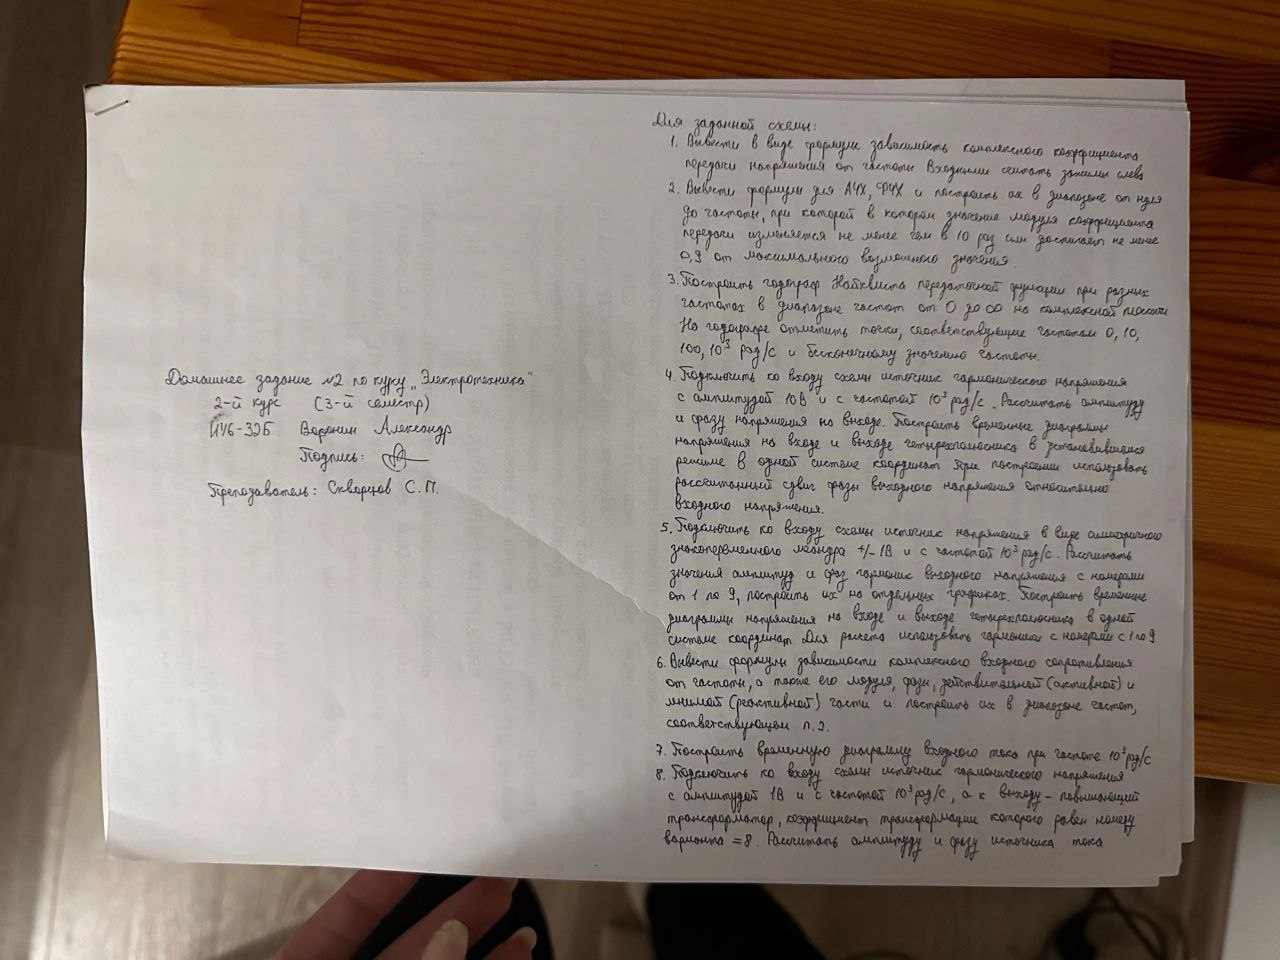 Домашнее задание №2 по курсу „Электротехника"
2-й курс (3-й семестр)
ИУ6-32Б Воронин Александр
Подпись:
Преподаватель: Скворцов С.П.
Для заданной схемы:
1. Вывести в виде формулы зависимость комплексного коэффициента
передачи напряжения от частоты. Входными считать зажимы слева
2. Вывести формулы для АЧХ, ФЧХ и построить их в диапазоне от нуля
до частоты, при которой в котором значение модуля коэффициента
передачи изменяется не менее чем в 10 раз или достигает не менее
0,9 от максимального возможного значения.
3. Построить годограф Найквиста передаточной функции при разных
частотах в диапазоне частот от 0 до ∞ на комплексной плоскости
На годографе отметить точки, соответствующие частотам 0, 10,
100, 10³ рад/с и бесконечному значению частоты.
4. Подключить ко входу схемы источник гармонического напряжения
с амплитудой 10В и с частотой 10³ рад/с. Рассчитать амплитуду
и фазу напряжения на выходе. Построить временные диаграммы
напряжения на входе и выходе четырехполюсника в установившемся
режиме в одной системе координат. При построении использовать
рассчитанный сдвиг фазы выходного напряжения относительно
входного напряжения.
5. Подключить ко входу схемы источник напряжения в виде симметричного
знакопеременного меандра +/- 1В и с частотой 10³ рад/с. Рассчитать
значения амплитуд и фаз гармоник выходного напряжения с номерами
от 1 по 9, построить их на отдельных графиках. Построить временные
диаграммы напряжения на входе и выходе четырехполюсника в одной
системе координат. Для расчета использовать гармоники с номерами с 1 по 9
6. Вывести формулы зависимости комплексного входного сопротивления
от частоты, а также его модуля, фазы, действительной (активной) и
мнимой (реактивной) части и построить их в диапазоне частот,
соответствующем п.2.
7. Построить временную диаграмму входного тока при частоте 10³ рад/с
8. Подключить ко входу схемы источник гармонического напряжения
с амплитудой 1В и с частотой 10³ рад/с, а к выходу - повышающий
трансформатор, коэффициент трансформации которого равен номеру
варианта = 8. Рассчитать амплитуду и фазу источника тока